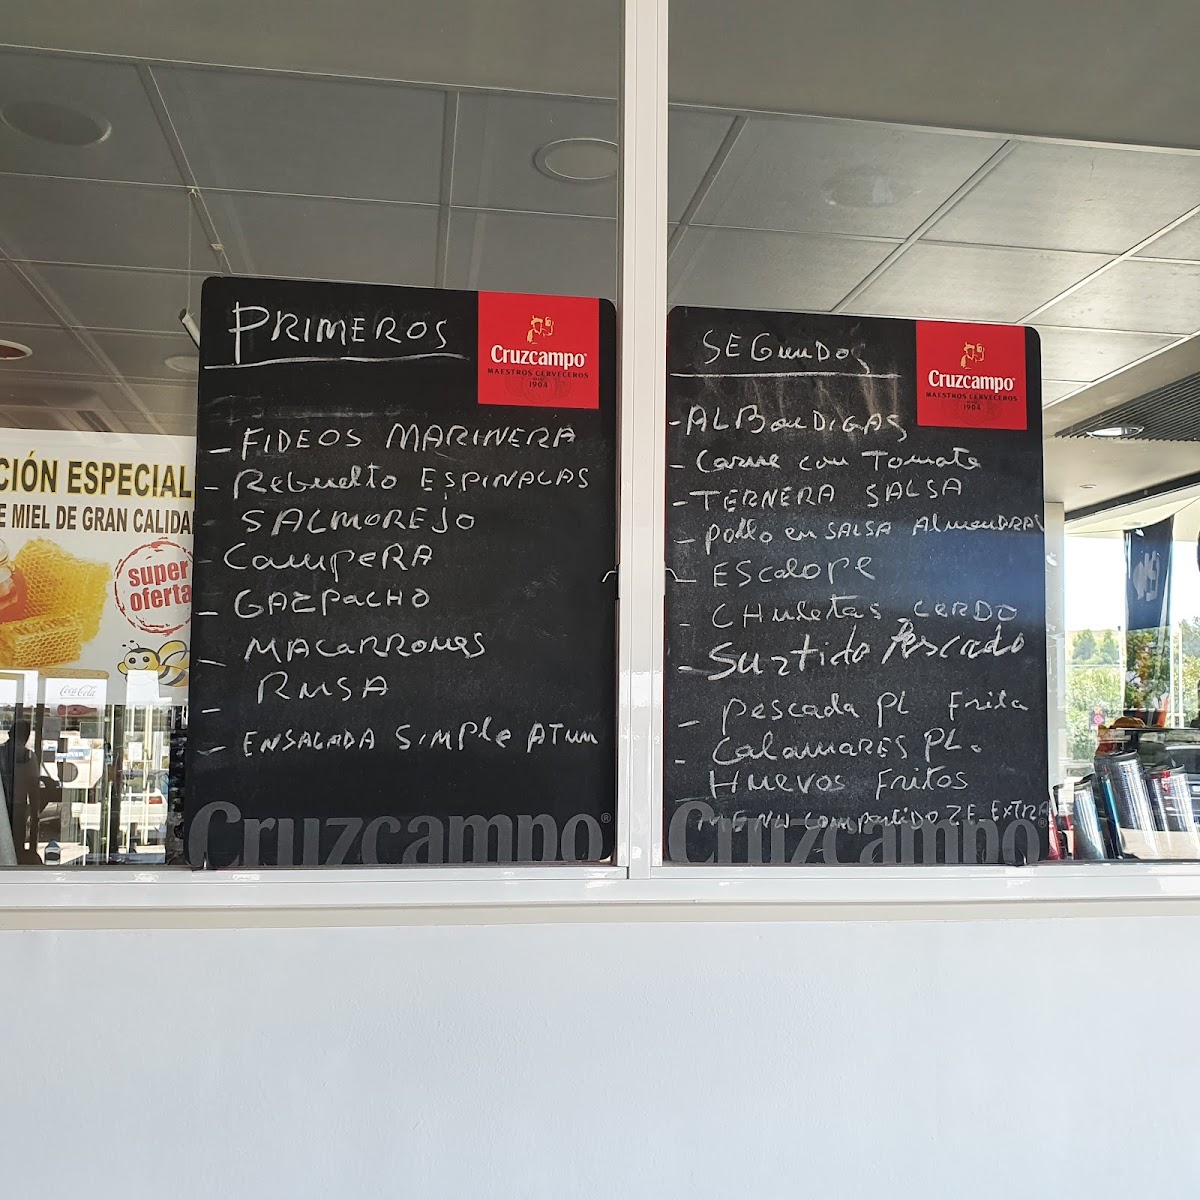 CIÓN ESPECIAL
E MIEL DE GRAN CALIDA
super
oferta
Coca-Cola
PRIMEROS
Cruzcampo
MAESTROS CERVECEROS
1904
- FIDEOS MARINERA
- REbuelto ESPINACAS
- SALMOREJO
- CampeRA
- GAZPACHO
- MACARRONES
- RUSA
- ENSALADA SIMPLE ATUN
Cruzcampo®
SEGUNDOS
Cruzcampo
MAESTROS CERVECEROS
1904
- ALBONDIGAS
- Carne con Tomate
- TERNERA SALSA
- pollo en SALSA AlmendRAS
- EScalope
CHuletas CERDO
- Surtido Pescado
- Pescada PL Frita
- CalamaRES PL.
- Huevos Fritos
MENU Compartido 2E EXTRA
Cruzcampo®